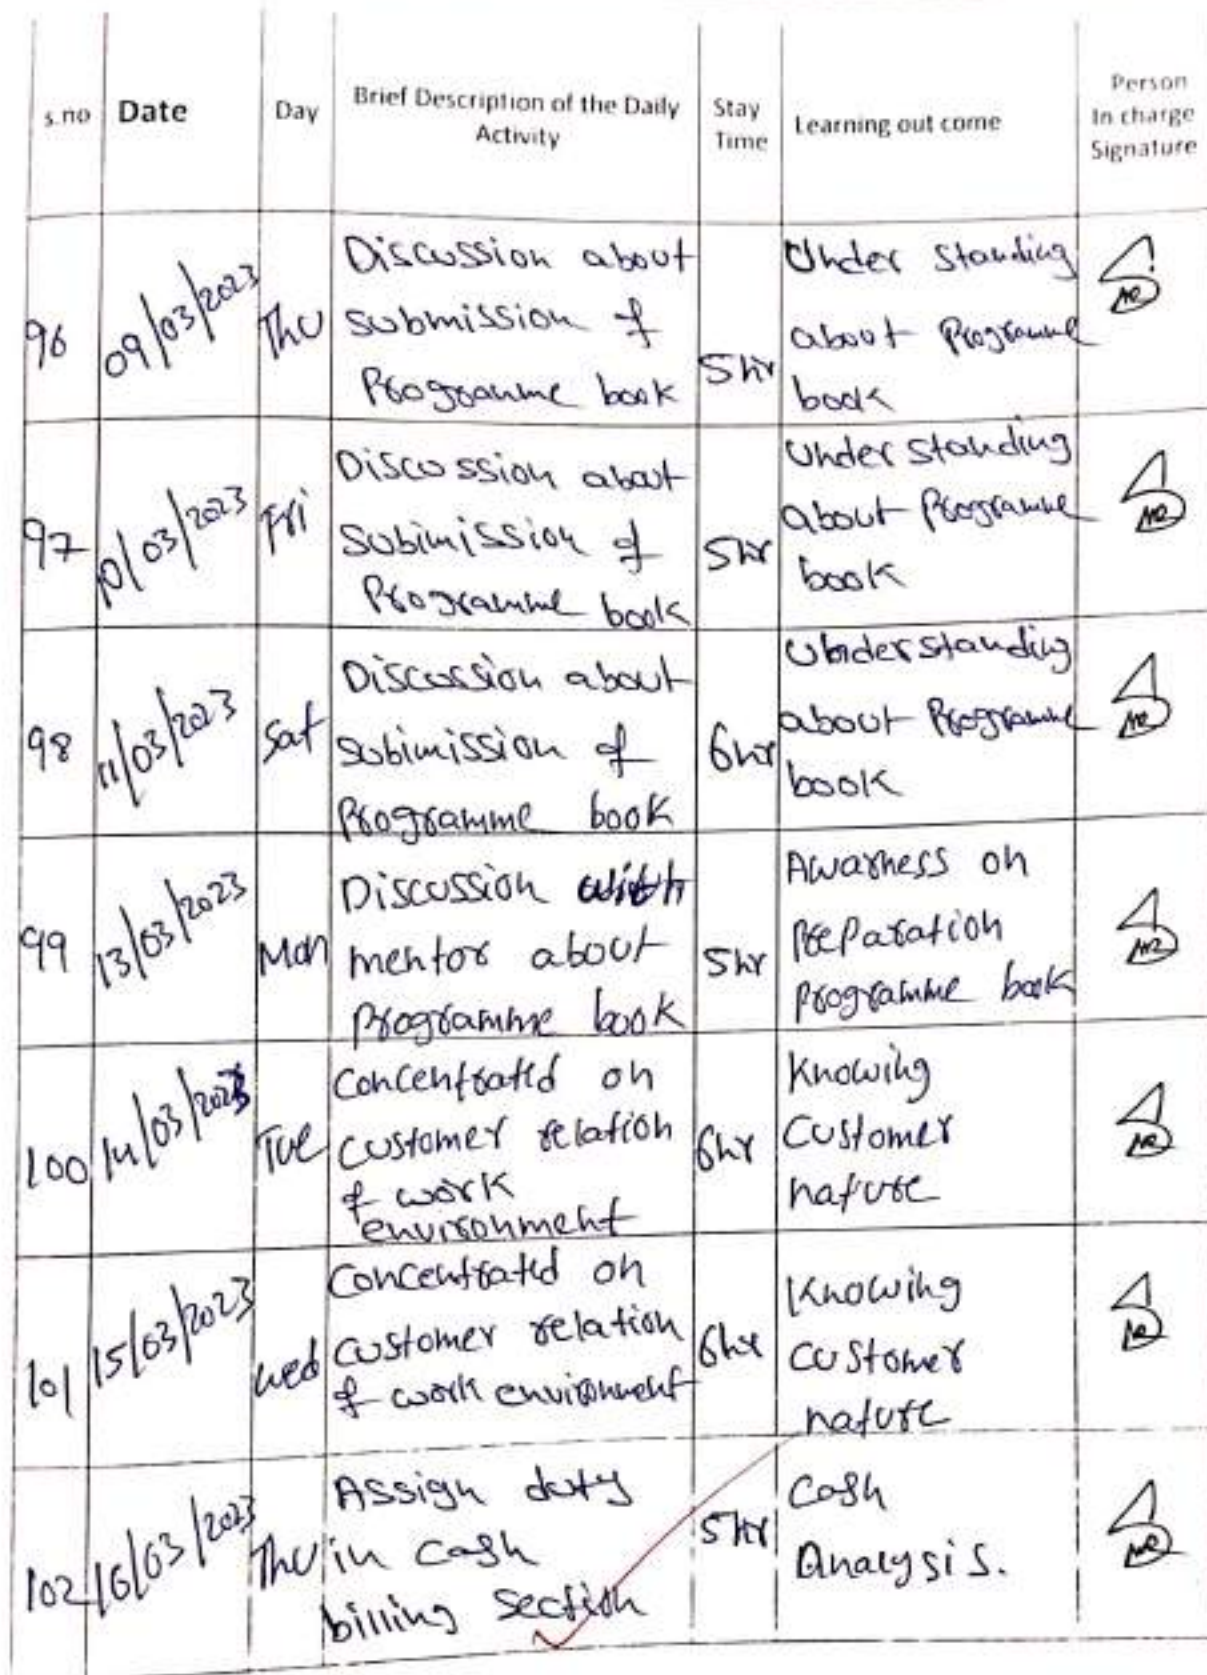 s.no Date Day Brief Description of the Daily Activity Stay Time Learning out come Person In charge Signature
96 09/03/2023 Thu Discussion about submission of Programme book 5hr Under standing about Programme book
97 10/03/2023 Fri Discussion about Subimission of Programme book 5hr Under standing about Programme book
98 11/03/2023 Sat Discussion about subimission of Programme book 6hr Understanding about Programme book
99 13/03/2023 Mon Discussion with mentor about Programme book 5hr Awarness on Preparation Programme book
100 14/03/2023 Tue Concentrated on customer relation of work environment 6hr Knowing Customer nature
101 15/03/2023 wed Concentrated on customer relation of work environment 6hr Knowing customer nature
102 16/03/2023 Thu Assign duty in cash billing section 5hr Cash Analysis.